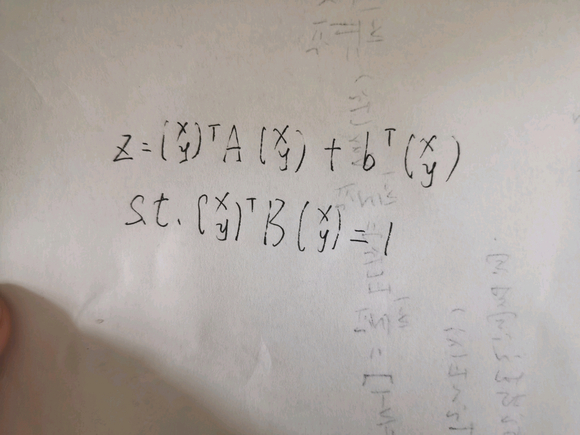 z = (x y)^T A (x y) + b^T (x y)
s.t. (x y)^T B (x y) = 1